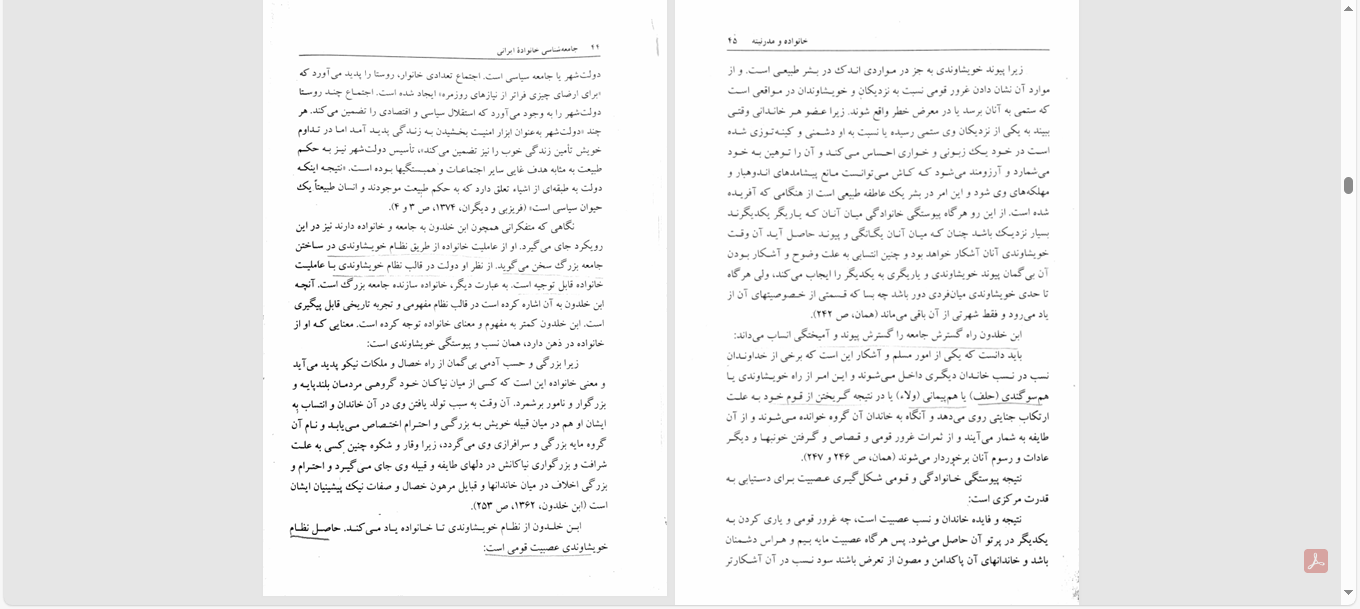 ۴۴ جامعه‌شناسی خانوادهٔ ایرانی
دولت‌شهر یا جامعه سیاسی است. اجتماع تعدادی خانوار، روستا را پدید می‌آورد که
«برای ارضای چیزی فراتر از نیازهای روزمره» ایجاد شده است. اجتماع چند روستا
دولت‌شهر را به وجود می‌آورد که استقلال سیاسی و اقتصادی را تضمین می‌کند. هر
چند «دولت‌شهر به‌عنوان ابزار امنیت بخشیدن به زندگی پدید آمد اما در تداوم
خویش تأمین زندگی خوب را نیز تضمین می‌کند»، تأسیس دولت‌شهر نیز به حکم
طبیعت به مثابه هدف غایی سایر اجتماعات و همبستگیها بوده است. «نتیجه اینکه
دولت به طبقه‌ای از اشیاء تعلق دارد که به حکم طبیعت موجودند و انسان طبیعتاً یک
حیوان سیاسی است» (فریزبی و دیگران، ۱۳۷۴، ص ۳ و ۴).
نگاهی که متفکرانی همچون ابن خلدون به جامعه و خانواده دارند نیز در این
رویکرد جای می‌گیرد. او از عاملیت خانواده از طریق نظام خویشاوندی در ساختن
جامعه بزرگ سخن می‌گوید. از نظر او دولت در قالب نظام خویشاوندی با عاملیت
خانواده قابل توجیه است. به عبارت دیگر، خانواده سازنده جامعه بزرگ است. آنچه
ابن خلدون به آن اشاره کرده است در قالب نظام مفهومی و تجربه تاریخی قابل پیگیری
است. ابن خلدون کمتر به مفهوم و معنای خانواده توجه کرده است. معنایی که او از
خانواده در ذهن دارد، همان نسب و پیوستگی خویشاوندی است:
زیرا بزرگی و حسب آدمی بی‌گمان از راه خصال و ملکات نیکو پدید می‌آید
و معنی خانواده این است که کسی از میان نیاکان خود گروهی مردمان بلندپایه و
بزرگوار و نامور برشمرد. آن وقت به سبب تولد یافتن وی در آن خاندان و انتساب به
ایشان او هم در میان قبیله خویش به بزرگی و احترام اختصاص می‌یابد و نام آن
گروه مایه بزرگی و سرافرازی وی می‌گردد، زیرا وقار و شکوه چنین کسی به علت
شرافت و بزرگواری نیاکانش در دلهای طایفه و قبیله وی جای می‌گیرد و احترام و
بزرگی اخلاف در میان خاندانها و قبایل مرهون خصال و صفات نیک پیشینیان ایشان
است (ابن خلدون، ۱۳۶۲، ص ۲۵۳).
ابن خلدون از نظام خویشاوندی تا خانواده یاد می‌کند. حاصل نظام
خویشاوندی عصبیت قومی است:
خانواده و مدرنیته ۴۵
زیرا پیوند خویشاوندی به جز در مواردی اندک در بشر طبیعی است. و از
موارد آن نشان دادن غرور قومی نسبت به نزدیکان و خویشاوندان در مواقعی است
که ستمی به آنان برسد یا در معرض خطر واقع شوند. زیرا عضو هر خاندانی وقتی
ببیند به یکی از نزدیکان وی ستمی رسیده یا نسبت به او دشمنی و کینه‌توزی شده
است در خود یک زبونی و خواری احساس می‌کند و آن را توهین به خود
می‌شمارد و آرزومند می‌شود که کاش می‌توانست مانع پیشامدهای اندوهبار و
مهلکه‌های وی شود و این امر در بشر یک عاطفه طبیعی است از هنگامی که آفریده
شده است. از این رو هرگاه پیوستگی خانوادگی میان آنان که یاریگر یکدیگرند
بسیار نزدیک باشد چنان که میان آنان یگانگی و پیوند حاصل آید آن وقت
خویشاوندی آنان آشکار خواهد بود و چنین انتسابی به علت وضوح و آشکار بودن
آن بی‌گمان پیوند خویشاوندی و یاریگری به یکدیگر را ایجاب می‌کند، ولی هرگاه
تا حدی خویشاوندی میان‌فردی دور باشد چه بسا که قسمتی از خصوصیتهای آن از
یاد می‌رود و فقط شهرتی از آن باقی می‌ماند (همان، ص ۲۴۲).
ابن خلدون راه گسترش جامعه را گسترش پیوند و آمیختگی انساب می‌داند:
باید دانست که یکی از امور مسلم و آشکار این است که برخی از خداوندان
نسب در نسب خاندان دیگری داخل می‌شوند و این امر از راه خویشاوندی یا
هم‌سوگندی (حلف) یا هم‌پیمانی (ولاء) یا در نتیجه گریختن از قوم خود به علت
ارتکاب جنایتی روی می‌دهد و آنگاه به خاندان آن گروه خوانده می‌شوند و از آن
طایفه به شمار می‌آیند و از ثمرات غرور قومی و قصاص و گرفتن خونبها و دیگر
عادات و رسوم آنان برخوردار می‌شوند (همان، ص ۲۴۶ و ۲۴۷).
نتیجه پیوستگی خانوادگی و قومی شکل‌گیری عصبیت برای دستیابی به
قدرت مرکزی است:
نتیجه و فایده خاندان و نسب عصبیت است، چه غرور قومی و یاری کردن به
یکدیگر در پرتو آن حاصل می‌شود. پس هرگاه عصبیت مایه بیم و هراس دشمنان
باشد و خاندانهای آن پاکدامن و مصون از تعرض باشند سود نسب در آن آشکارتر